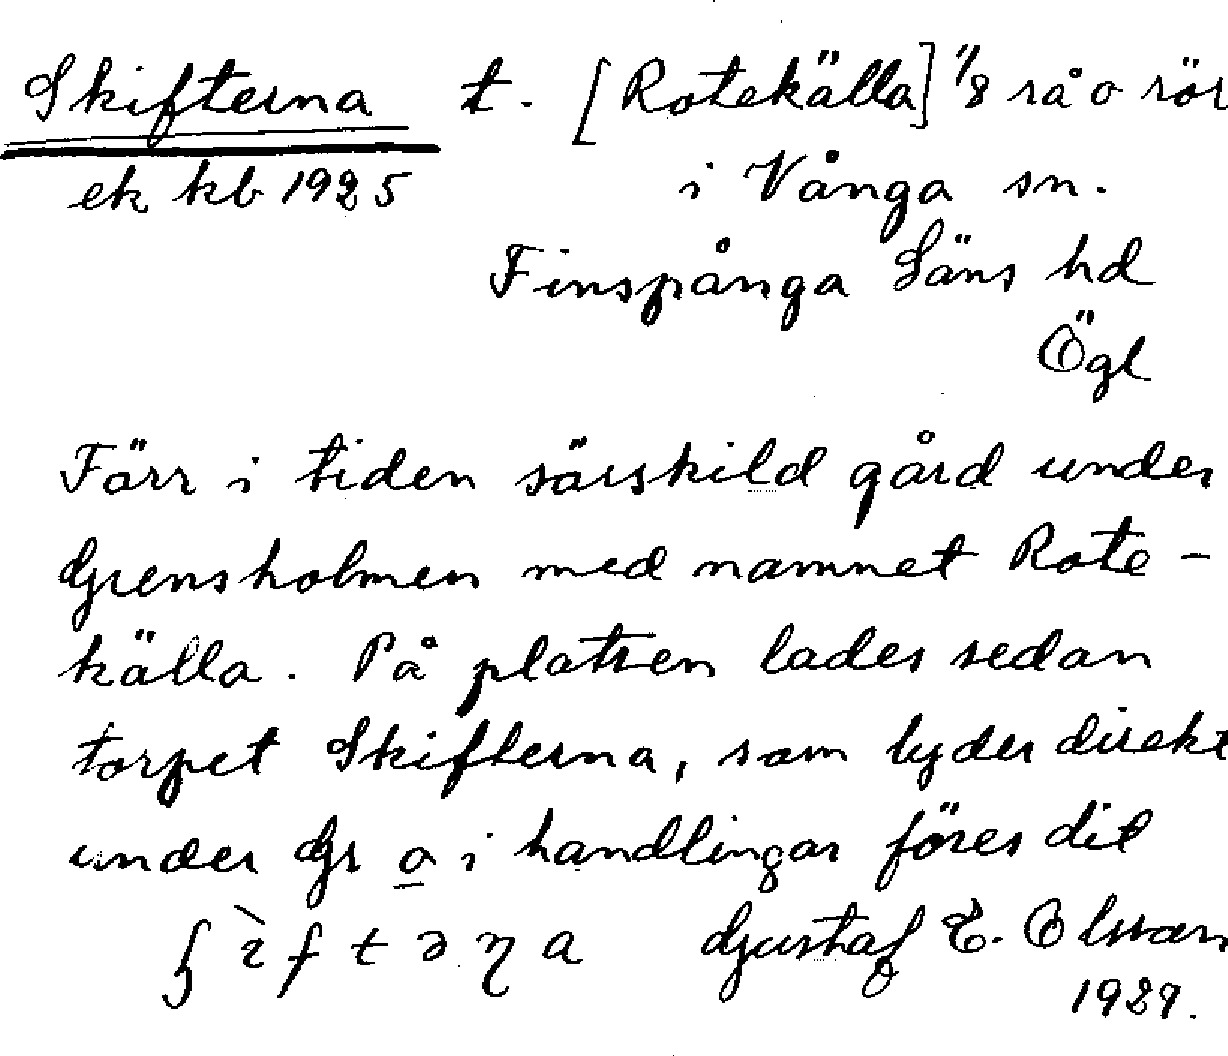 Skifterna t. [Rotekälla] 1/8 rå o rör
ek kb 1925 i Vånga sn.
Finspånga Läns hd
Ögl
Förr i tiden särskild gård under
Grensholmen med namnet Rote-
källa. På platsen lades sedan
torpet Skifterna, som lyder direkt
under Gr o i handlingar föres dit
Gustaf E. Olsson
1929.